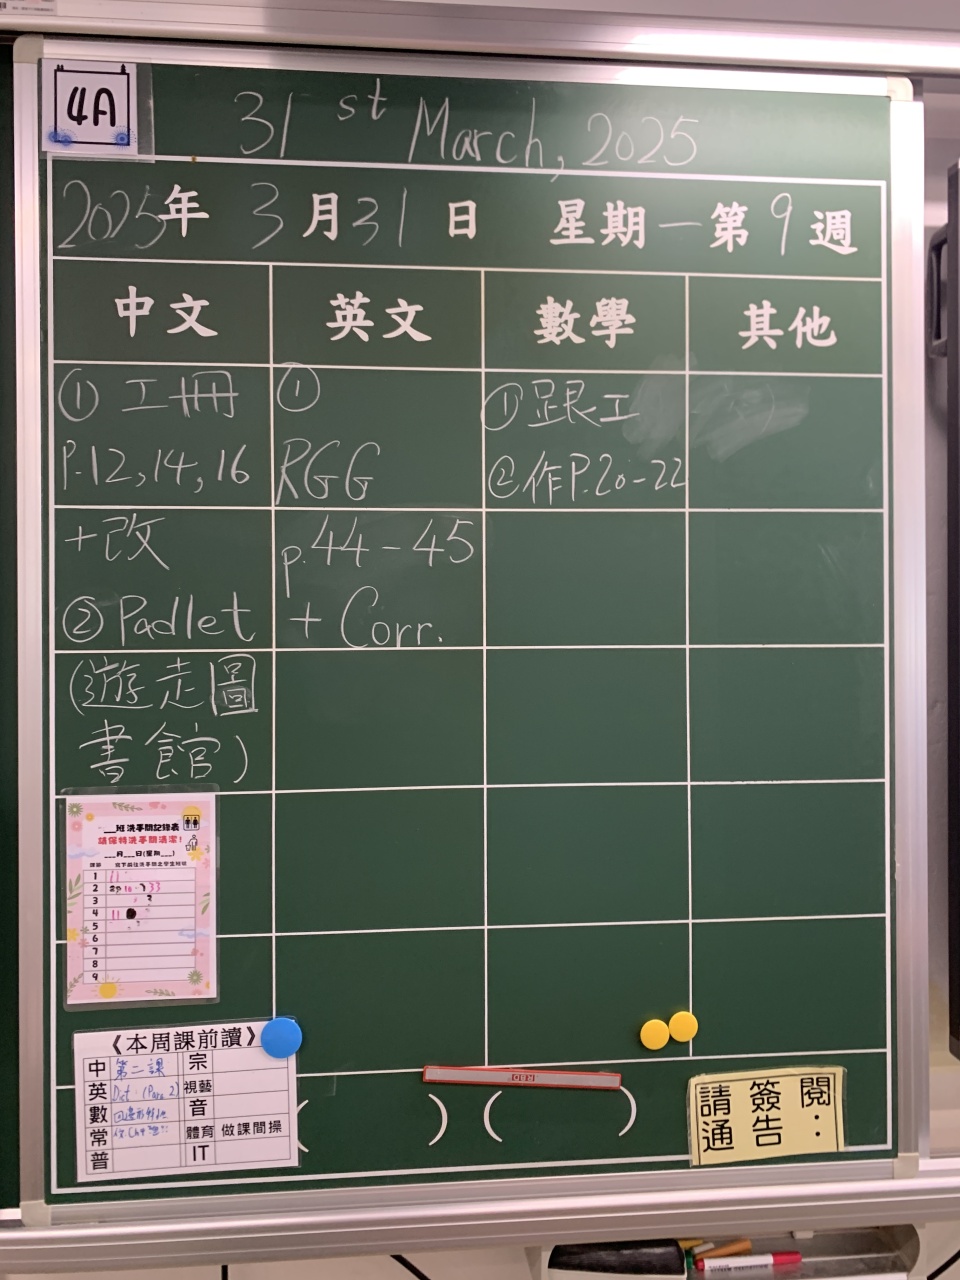 4A
31st March, 2025
2025年 3月31日 星期一第9週
中文 英文 數學 其他
① 工冊
P.12,14,16
+改
② Padlet
(遊走圖
書館)
①
RGG
p.44-45
+ Corr.
① 跟工
② 作P.20-22
___班洗手間記錄表
請保持洗手間清潔!
___月___日(星期___)
1 11
2
3
4 11
5
6
7
8
9
《本周課前讀》
中 第二課 宗
英 Dict. (Para 2) 視藝
數 音
常 體育 做課間操
普 IT
( ) ( )
請簽閱:
通告